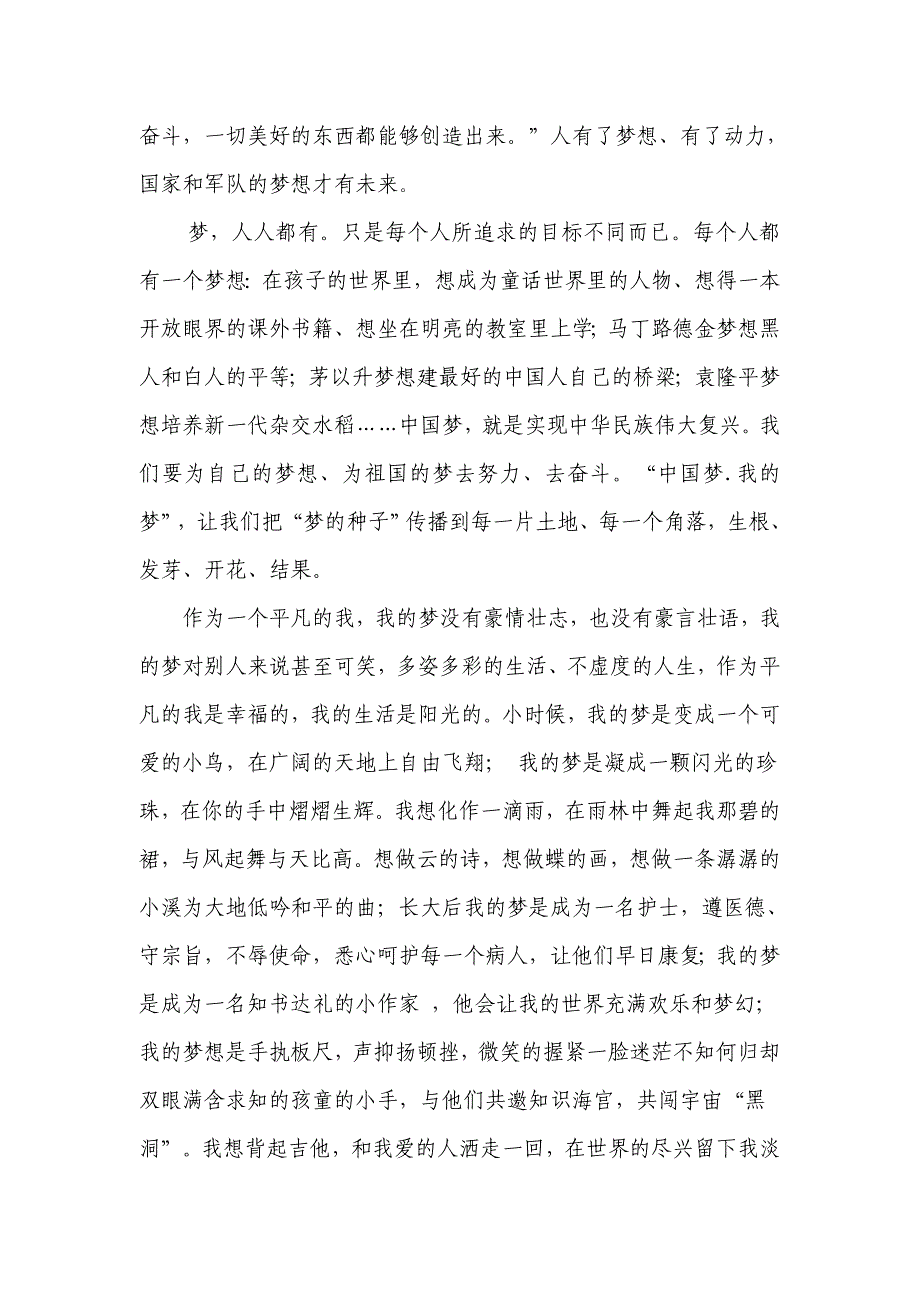 奋斗，一切美好的东西都能够创造出来。”人有了梦想、有了动力，
国家和军队的梦想才有未来。
梦，人人都有。只是每个人所追求的目标不同而已。每个人都
有一个梦想：在孩子的世界里，想成为童话世界里的人物、想得一本
开放眼界的课外书籍、想坐在明亮的教室里上学；马丁路德金梦想黑
人和白人的平等；茅以升梦想建最好的中国人自己的桥梁；袁隆平梦
想培养新一代杂交水稻……中国梦，就是实现中华民族伟大复兴。我
们要为自己的梦想、为祖国的梦去努力、去奋斗。“中国梦.我的
梦”，让我们把“梦的种子”传播到每一片土地、每一个角落，生根、
发芽、开花、结果。
作为一个平凡的我，我的梦没有豪情壮志，也没有豪言壮语，我
的梦对别人来说甚至可笑，多姿多彩的生活、不虚度的人生，作为平
凡的我是幸福的，我的生活是阳光的。小时候，我的梦是变成一个可
爱的小鸟，在广阔的天地上自由飞翔； 我的梦是凝成一颗闪光的珍
珠，在你的手中熠熠生辉。我想化作一滴雨，在雨林中舞起我那碧的
裙，与风起舞与天比高。想做云的诗，想做蝶的画，想做一条潺潺的
小溪为大地低吟和平的曲；长大后我的梦是成为一名护士，遵医德、
守宗旨，不辱使命，悉心呵护每一个病人，让他们早日康复；我的梦
是成为一名知书达礼的小作家 ，他会让我的世界充满欢乐和梦幻；
我的梦想是手执板尺，声抑扬顿挫，微笑的握紧一脸迷茫不知何归却
双眼满含求知的孩童的小手，与他们共邀知识海宫，共闯宇宙“黑
洞”。我想背起吉他，和我爱的人洒走一回，在世界的尽兴留下我淡